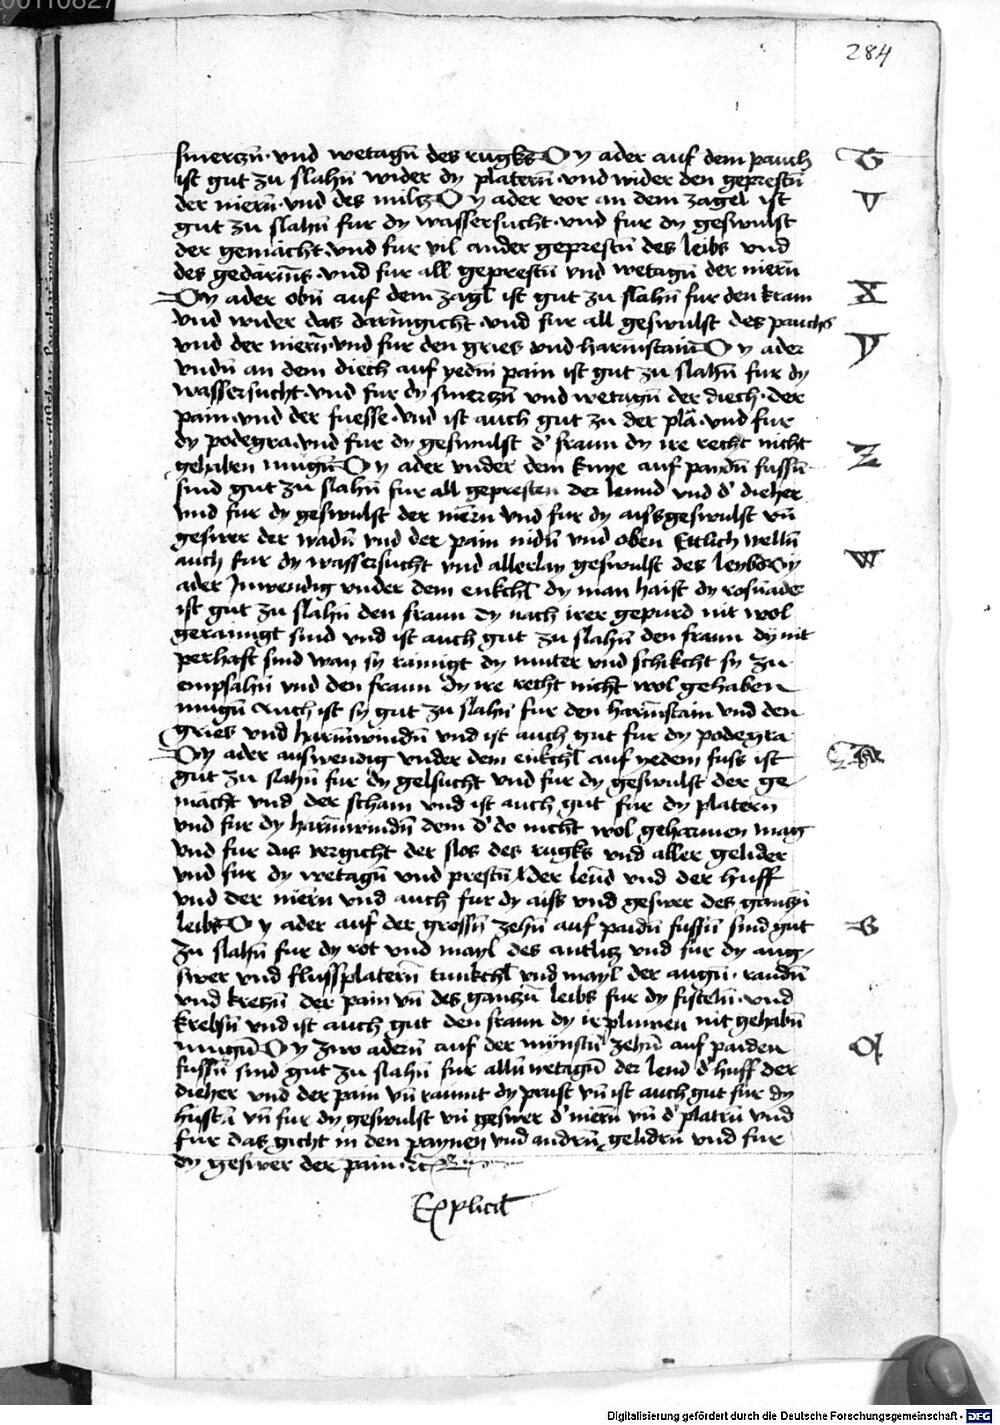 284
smerczn̄ · vnd wetagn̄ des rugks Dy ader auf dem pauch T
ist gut zu slahn̄ wider dy platern̄ vnd wider den geprestn̄
der niern̄ · vnd des miltz Dy ader vor an dem zagel ist V
gut zu slahn̄ fur dy wassersucht · vnd fur dy geswulst
der gemacht · vnd fur vil ander geprestn̄ des leibs vnd
des gedarms · vnd fur all geprestn̄ vnd wetagn̄ der niern̄
Dy ader obn̄ auf dem zagl ist gut zu slahn̄ fur den kram X
vnd wider das darmgicht · vnd fur all geswulst des pauchs
vnd der niern̄ · vnd fur den gries vnd harmstain Dy ader Y
vndn̄ an dem diech auf yedm pain ist gut zu slahn̄ fur dy
wassersucht · vnd fur dy smerczn̄ vnd wetagn̄ der diech · der
pain · vnd der fuesse · vnd ist auch gut zu der pla · vnd fur
dy podegra · vnd fur dy geswulst d' fraun dy ire recht nicht
gehaben mugn̄ Dy ader vnder dem knye auf paidn̄ fussn̄ Z
sind gut zu slahn̄ fur all gepresten der lennd vnd d' dieher
vnd fur dy geswulst der niern vnd fur dy aissgeswulst vn̄
geswer der wadn̄ vnd der pain nidn̄ vnd oben Ettlich welln̄
auch fur dy wassersucht vnd allerlay geswulst des leybs Dy W
ader Inwendig vnder dem enkchl dy man haist dy rosnader
ist gut zu slahn̄ den fraun dy nach irer gepurd nit wol
gerainigt sind vnd ist auch gut zu slahn̄ den fraun dy nit
perhaft sind wan sy rainigt dy muter vnd schikcht sy zu
empfahn̄ vnd den fraun dy ire recht nicht wol gehaben
mugn̄ Auch ist sy gut zu slahn̄ fur den harmstain vnd den
gries vnd harmwindn̄ vnd ist auch gut fur dy podegra
Dy ader auswendig vnder dem enkchl auf yedem fuss ist
gut zu slahn̄ fur dy gelsucht vnd fur dy geswulst der ge
macht vnd der scham vnd ist auch gut fur dy platern
vnd fur dy harmwindn̄ dem d' do nicht wol geharmen mag
vnd fur das vergicht der slos des rugks vnd aller gelider
vnd fur dy wetagn̄ vnd prestn̄ der lend vnd der huff
vnd der niern vnd auch fur dy aiss vnd geswer des ganczn̄
leibs Dy ader auf der grossn̄ zehn̄ auf paidn̄ fussn̄ sind gut
zu slahn̄ fur dy rot vnd mayl des antlitz vnd fur dy aug
swer vnd flussplatern̄ tunkchl vnd mayl der augn̄ · raudn̄
vnd kretzn̄ der pain vn̄ des ganczn̄ leibs fur dy fisteln̄ · vnd
krebsn̄ vnd ist auch gut den fraun dy ir plumen nit gehabn̄
mugn̄ Dy zwo adern̄ auf der mynstn̄ zehn̄ auf paiden
fussn̄ sind gut zu slahn̄ fur alln̄ wetagn̄ der lend d' huff der
dieher vnd der pain vn̄ raumt dy prust vn̄ ist auch gut fur dy
hustn̄ vn̄ fur dy geswulst vn̄ geswer d' niern̄ vn̄ d' platrn̄ vnd
fur das gicht in den paynen vnd andrn̄ gelidrn̄ vnd fur
dy geswer der pain · rc̄
Explicit
Digitalisierung gefördert durch die Deutsche Forschungsgemeinschaft - DFG